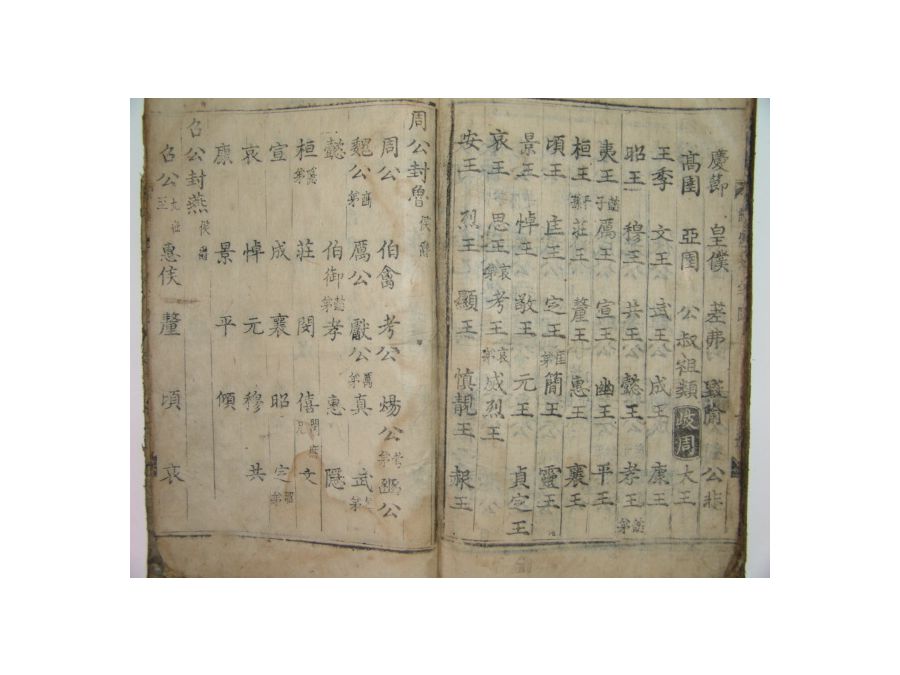 慶節 皇僕 差弗 毀隃 公非
高圉 亞圉 公叔祖類 岐周 大王
王季 文王 武王 成王 康王
昭王 穆王 共王 懿王 孝王 懿弟
夷王 懿子 厲王 宣王 幽王 平王
桓王 平孫 莊王 釐王 惠王 襄王
頃王 匡王 定王 匡弟 簡王 靈王
景王 悼王 敬王 元王 貞定王
哀王 思王 哀弟 考王 哀弟 威烈王
安王 烈王 顯王 慎靚王 赧王
周公封魯 侯爵
周公 伯禽 考公 煬公 考弟 幽公
魏公 幽弟 厲公 獻公 厲弟 真 武 真弟
懿 伯御 孝 懿弟 惠 隱
桓 隱弟 莊 閔 僖 閔庶兄 文
宣 成 襄 昭 定 昭弟
哀 悼 元 穆 共
康 景 平 傾
召公封燕 侯爵
召公 九世至 惠侯 釐 頃 哀